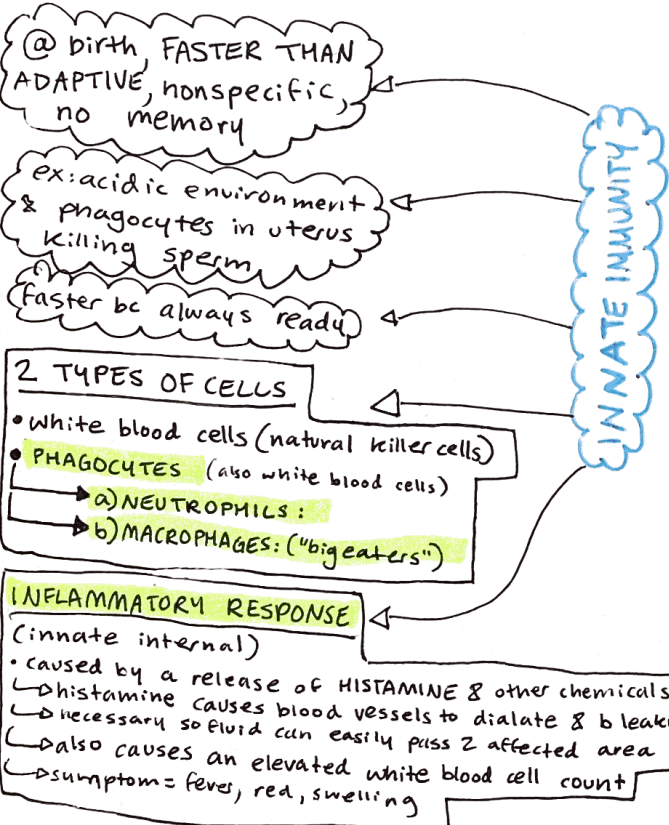 @ birth, FASTER THAN
ADAPTIVE, nonspecific,
no memory
ex: acidic environment
& phagocytes in uterus
killing sperm
faster bc always ready
INNATE IMMUNITY
2 TYPES OF CELLS
• white blood cells (natural killer cells)
• PHAGOCYTES (also white blood cells)
a) NEUTROPHILS:
b) MACROPHAGES: ("big eaters")
INFLAMMATORY RESPONSE
(innate internal)
• caused by a release of HISTAMINE & other chemicals
histamine causes blood vessels to dialate & b
necessary so fluid can easily pass 2 affected area
also causes an elevated white blood cell count
sumptom = fever, red, swelling